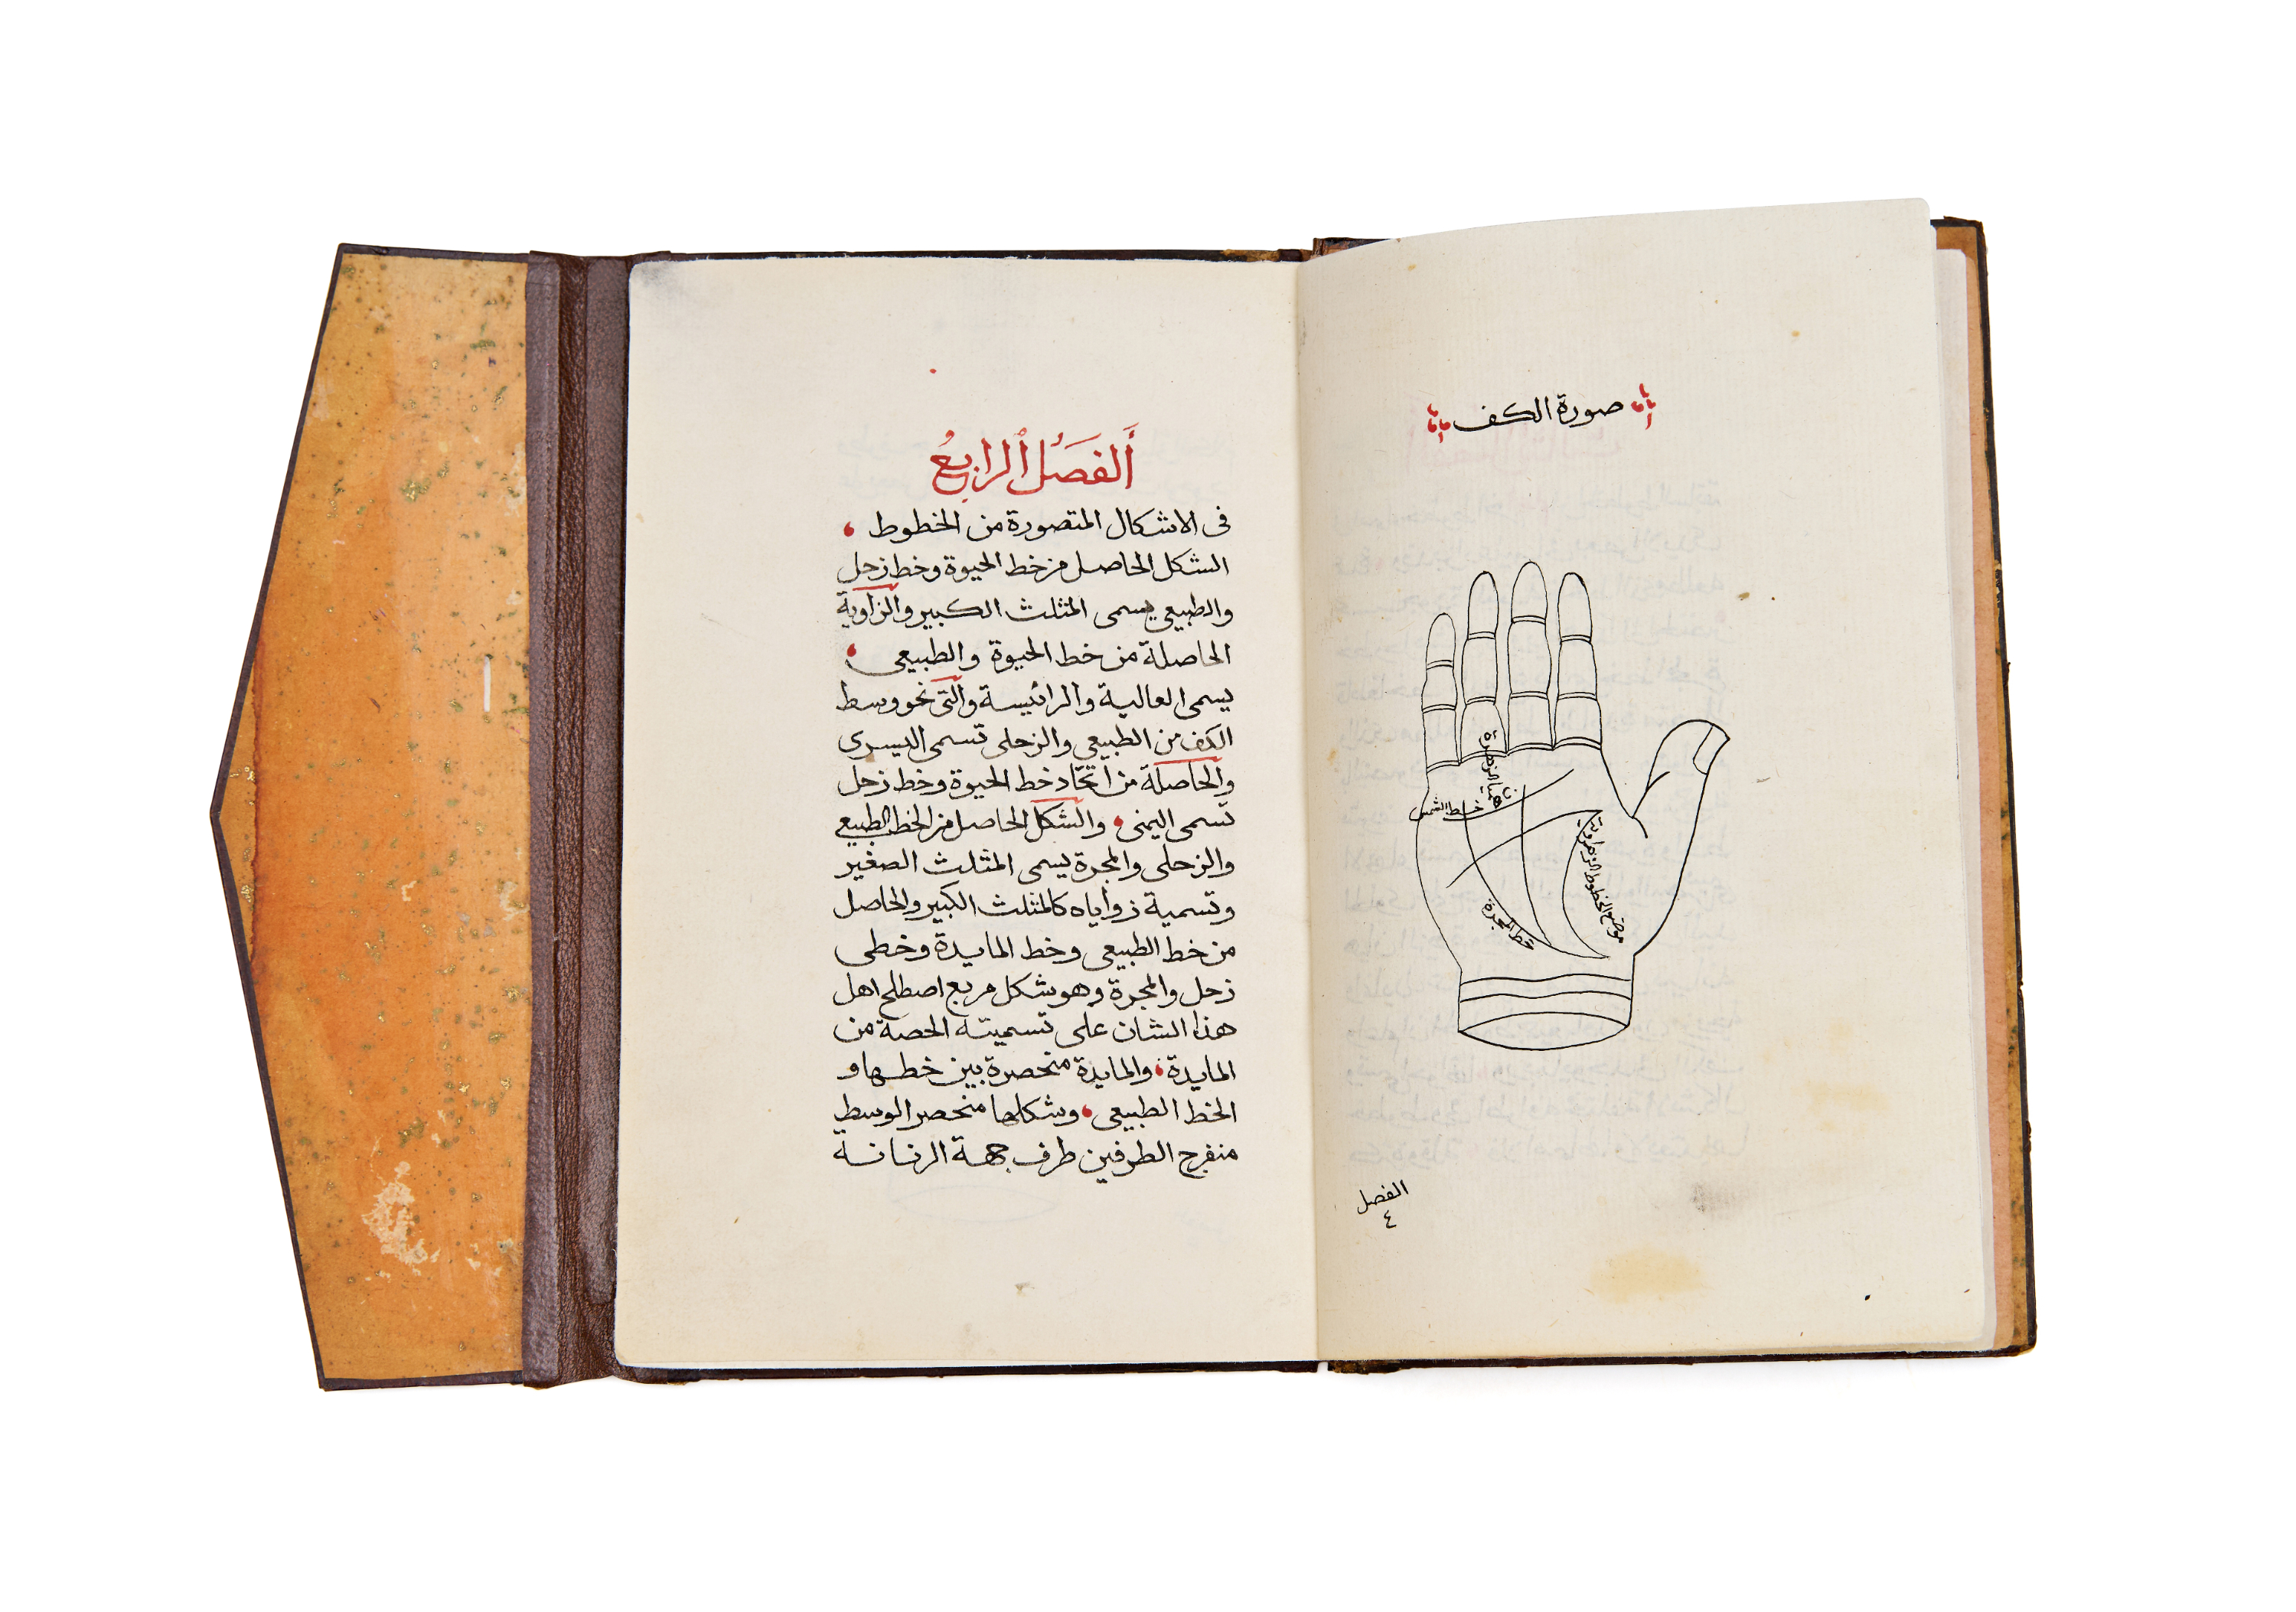 صورة الكف
هميا الزهرة
خط الشمس
موضع الخطوط الزهراوية
خط المجرة
الفصل
٤
أَلفَصْلُ الرابعُ
فى الاشكال المتصورة من الخطوط
الشكل الحاصل من خط الحيوة وخط زحل
والطبيعى يسمى المثلث الكبير والزاوية
الحاصلة من خط الحيوة والطبيعى
يسمى العالية والرائيسة والتى نحو وسط
الكف من الطبيعى والزحلى تسمى اليسرى
والحاصلة من اتحاد خط الحيوة وخط زحل
تسمى اليمنى والشكل الحاصل من الخط الطبيعى
والزحلى والمجرة يسمى المثلث الصغير
وتسمية زواياه كالمثلث الكبير والحاصل
من خط الطبيعى وخط المايدة وخطى
زحل والمجرة وهو شكل مربع اصطلح اهل
هذا الشان على تسميته الحصة من
المايدة والمايدة منحصرة بين خطها و
الخط الطبيعى وشكلها منحصر الوسط
منفرج الطرفين طرف جهة